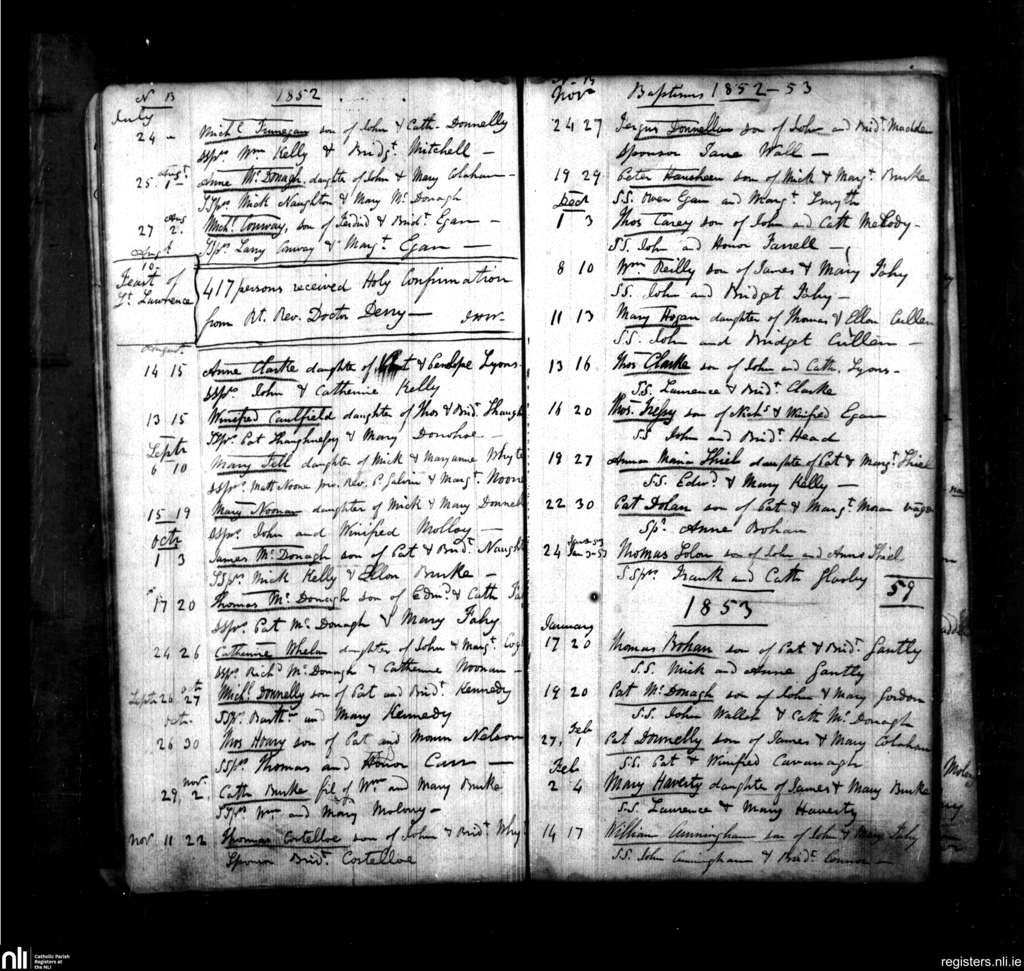 N B 1852
July
24 - Michl. Finnegan son of John & Cath. Donnelly
SSprs. Wm Kelly & Bridgt. Mitchell -
25 Augt. 1 - Anne Mc.Donagh daughter of John & Mary Colahan -
SSprs. Mick Naughten & Mary Mc.Donagh
27 Aug 2. Michl. Conway, son of & Bridt. Egan -
SSprs. Larry Conway & Margt. Egan -
Augt.
10
Feast of
St. Lawrence
417 persons received Holy Confirmation
from Rt. Rev. Doctor Derry -
August
14 15 Anne Clarke daughter of & Lyons -
SSprs. John & Catherine Kelly
13 15 Winifred Caulfield daughter of Thos & Bridt.
SSprs. Pat Shaughnessy & Mary Donohoe -
Septr
6 10 Mary Fell daughter of Mick & Maryanne Whyte
SSprs. Matt Noone Rev. P. Galvin & Margt. Noone
15 19 Mary Noonan daughter of Mick & Mary
SSprs. John and Winifred Molloy -
Octr
1 3 James Mc.Donagh son of Pat & Bridt.
SSprs. Mick Kelly & Ellen Burke -
17 20 Thomas Mc.Donagh son of Edmd. & Cath
SSprs. Pat Mc.Donagh & Mary Fahy
24 26 Catherine Whelan daughter of John & Margt.
SSprs. Richd. Mc.Donagh & Catherine Noonan -
Septr 26 Oct 27 Michl. Donnelly son of Pat and Bridt. Kennedy
SSprs. Barthw. and Mary Kennedy
Octr.
26 30 Thos Hoary son of Pat and Nelson
SSprs Thomas and Honor -
29, Novr. 2. Cath Burke of Wm and Mary Burke
SSprs Wm and Mary Molony -
Nov 11 22 Thomas Costelloe son of John & Bridt.
Sponsor Bridt. Costelloe
N B
Novr Baptisms 1852-53
24 27 Fergus Donnellan son of John and Bridt. Madden
Sponsor Jane Wall -
19 29 Peter son of Mick & Margt. Burke
SS. Owen Egan and Margt. Smyth
Decr
1 3 Thos Carey son of John and Cath Melody -
SS. John and Honor Farrell -
8 10 Wm. Reilly son of James & Mary Fahy
SS. John and Bridget Fahy -
11 13 Mary Hogan daughter of Thomas & Ellen Cullen
SS. John and Bridget Cullen -
13 16 Thos Clarke son of John and Cath. Lyons -
SS. Laurence & Bridt. Clarke
16 20 Thos. son of & Winifred Egan
SS. John and Bridt. Head
19 27 Maria Shiel daughter of Pat & Margt. Shiel
SS. Edwd. & Mary Kelly -
22 30 Pat Dolan son of Pat & Margt. Moran
Spr. Anne Bohan
24 Thomas son of John and Anne Shiel
SSprs. Frank and Cath 59
1853
January
17 20 Thomas Bohan son of Pat & Bridt. Gantly
SS. Mick and Anne Gantly
19 20 Pat Mc.Donagh son of John & Mary Gordon
SS. John Walsh & Cath Mc.Donagh
27, Feb 1 Pat Donnelly son of James & Mary Colahan
SS. Pat & Winifred Cavanagh
Feb
2 4 Mary Haverty daughter of James & Mary Burke
SS. Laurence & Mary Haverty
14 17 William Cunningham son of John & Mary Fahy
SS. John Cuningham & Bridt. Connor -
nli Catholic Parish
Registers at
the NLI
registers.nli.ie